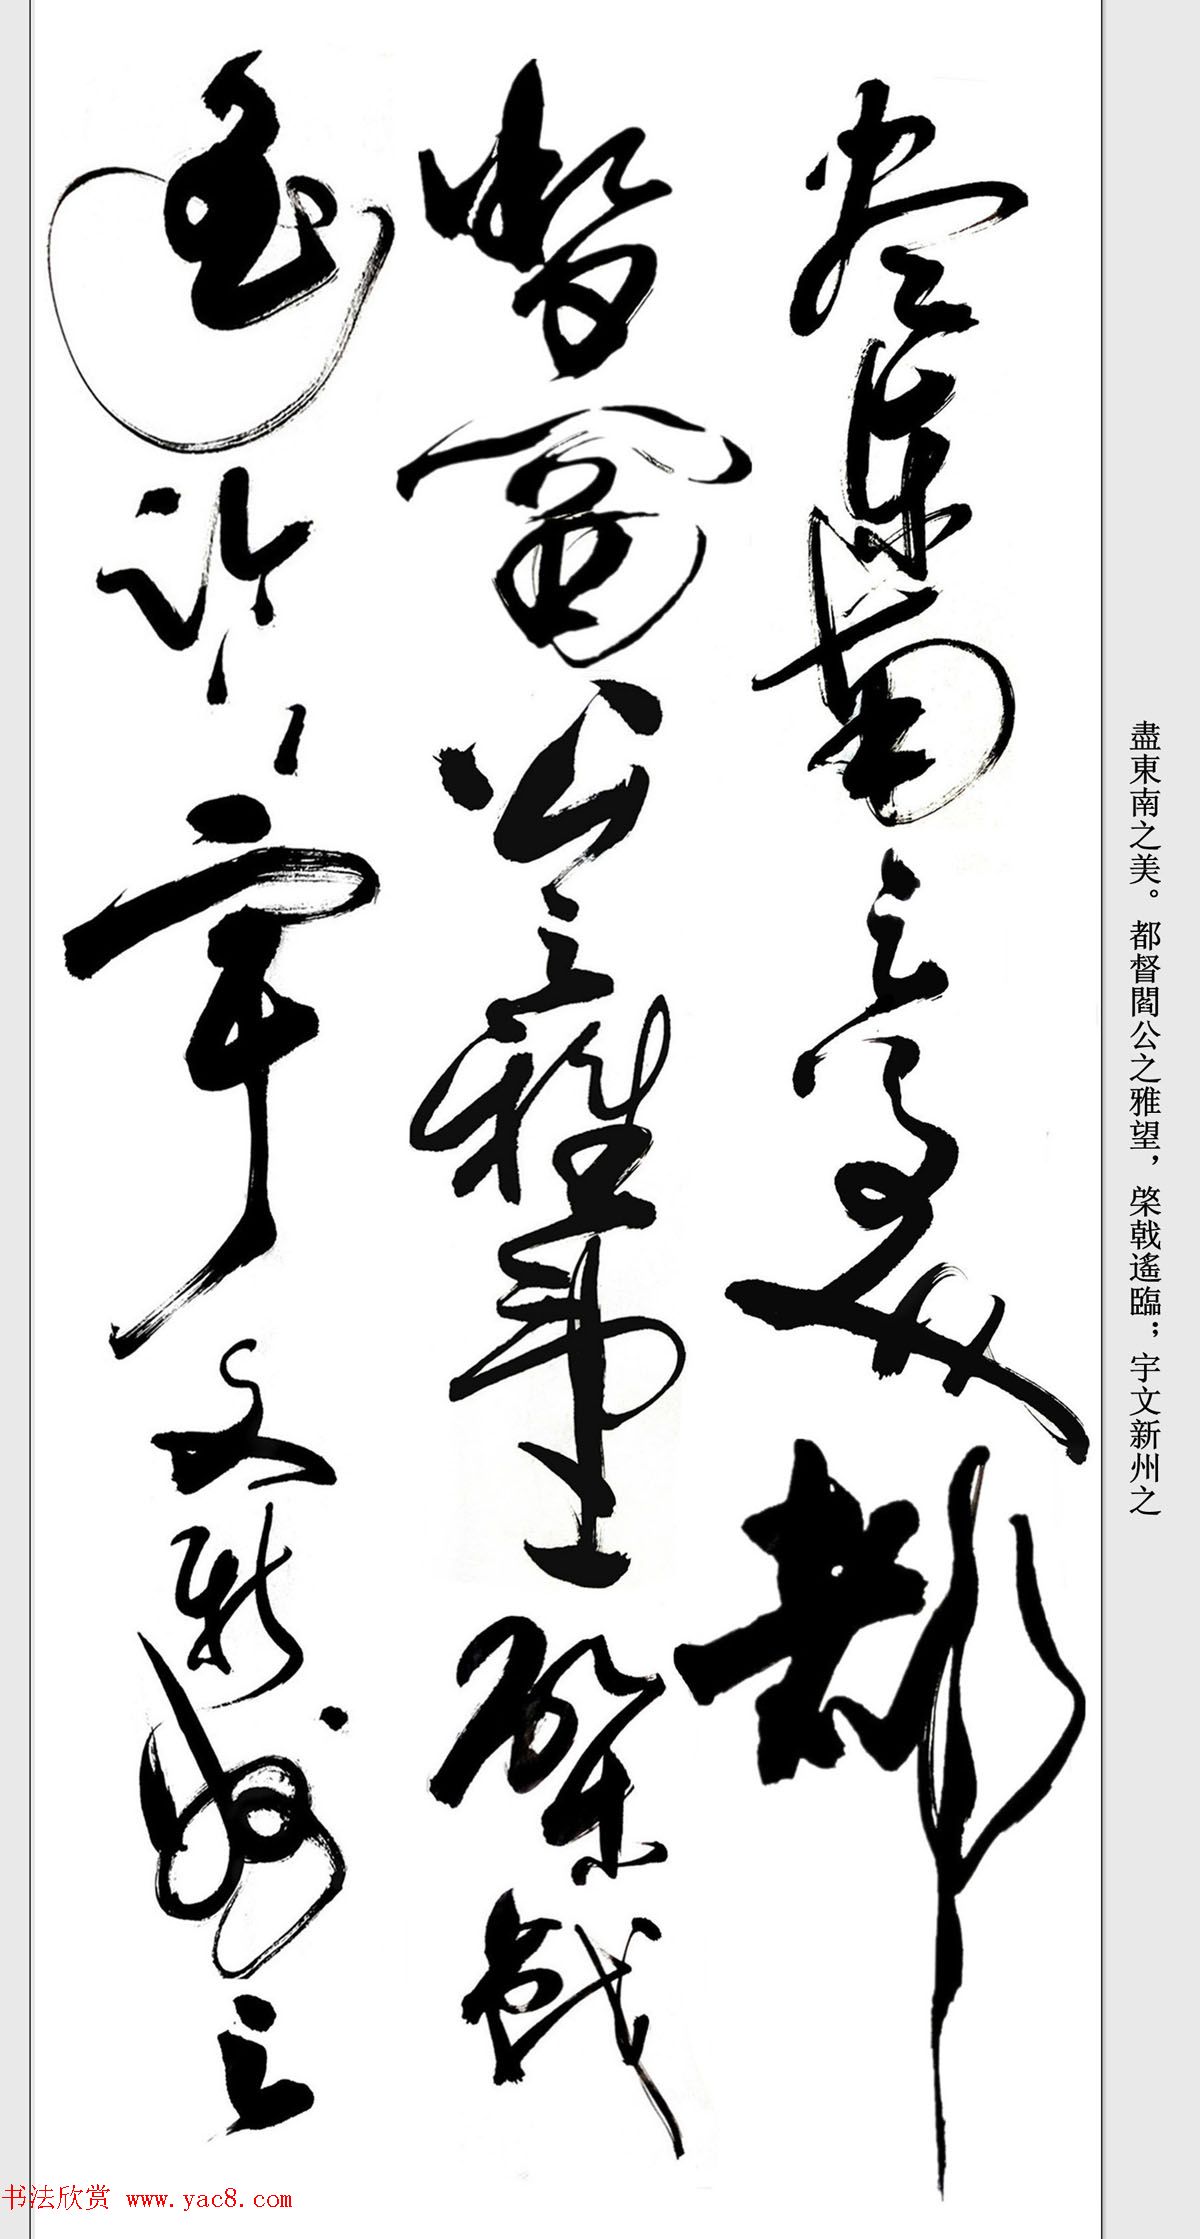 盡東南之美。都督閻公之雅望，棨戟遙臨；宇文新州之
尽东南之美都
督阎公之雅望棨戟
遥临宇文新州之
书法欣赏 www.yac8.com